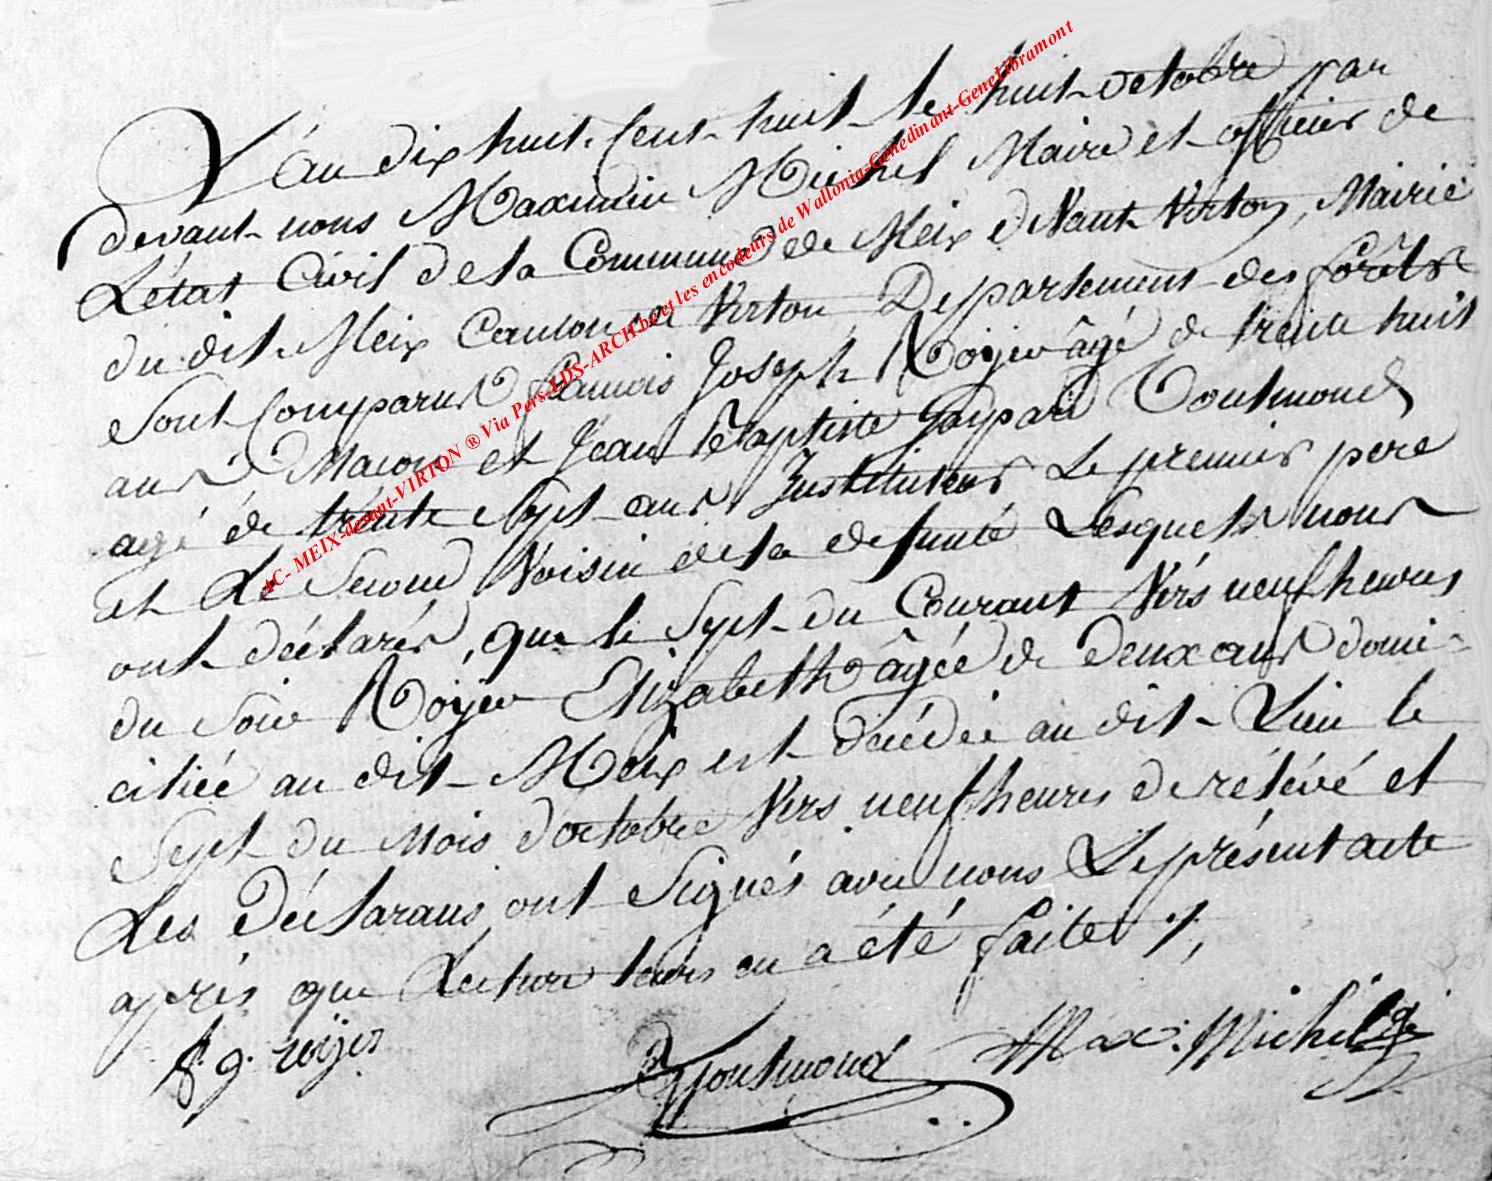 L'an dix huit Cent huit le huit octobre par
devant nous Maximin Michel Maire et officier de
L'état Civil de la Commune de Meix devant Virton, Mairie
du dit Meix Canton de Virton Departement des forêts
Sont Comparus francois Joseph Royer âgé de trente huit
ans Macon et Jean Baptiste Gaspard Toutmond
agé de trente Sept ans Instituteur Le premier pere
et Le Second Voisin de la defunté Lesquels nous
ont déclarés, que le Sept du Courant Vérs neuf heures
du Soir Röyer Elizabeth âgéé de Deux ans domi-
ciliéé au dit Meix est décédéé au dit Lieu le
Sept du Mois doctobre Vérs neuf heures de rélévé et
Les Déclarans ont Signés avec nous Le présent acte
aprés que Lecture leurs en a été faite ./.
f: j. roÿer
Toutmond
Max: Michel
AC- MEIX-devant-VIRTON ® Via Pers-LDS-ARCH.be et les encodeurs de Wallonia-Genedinant-GeneLibramont